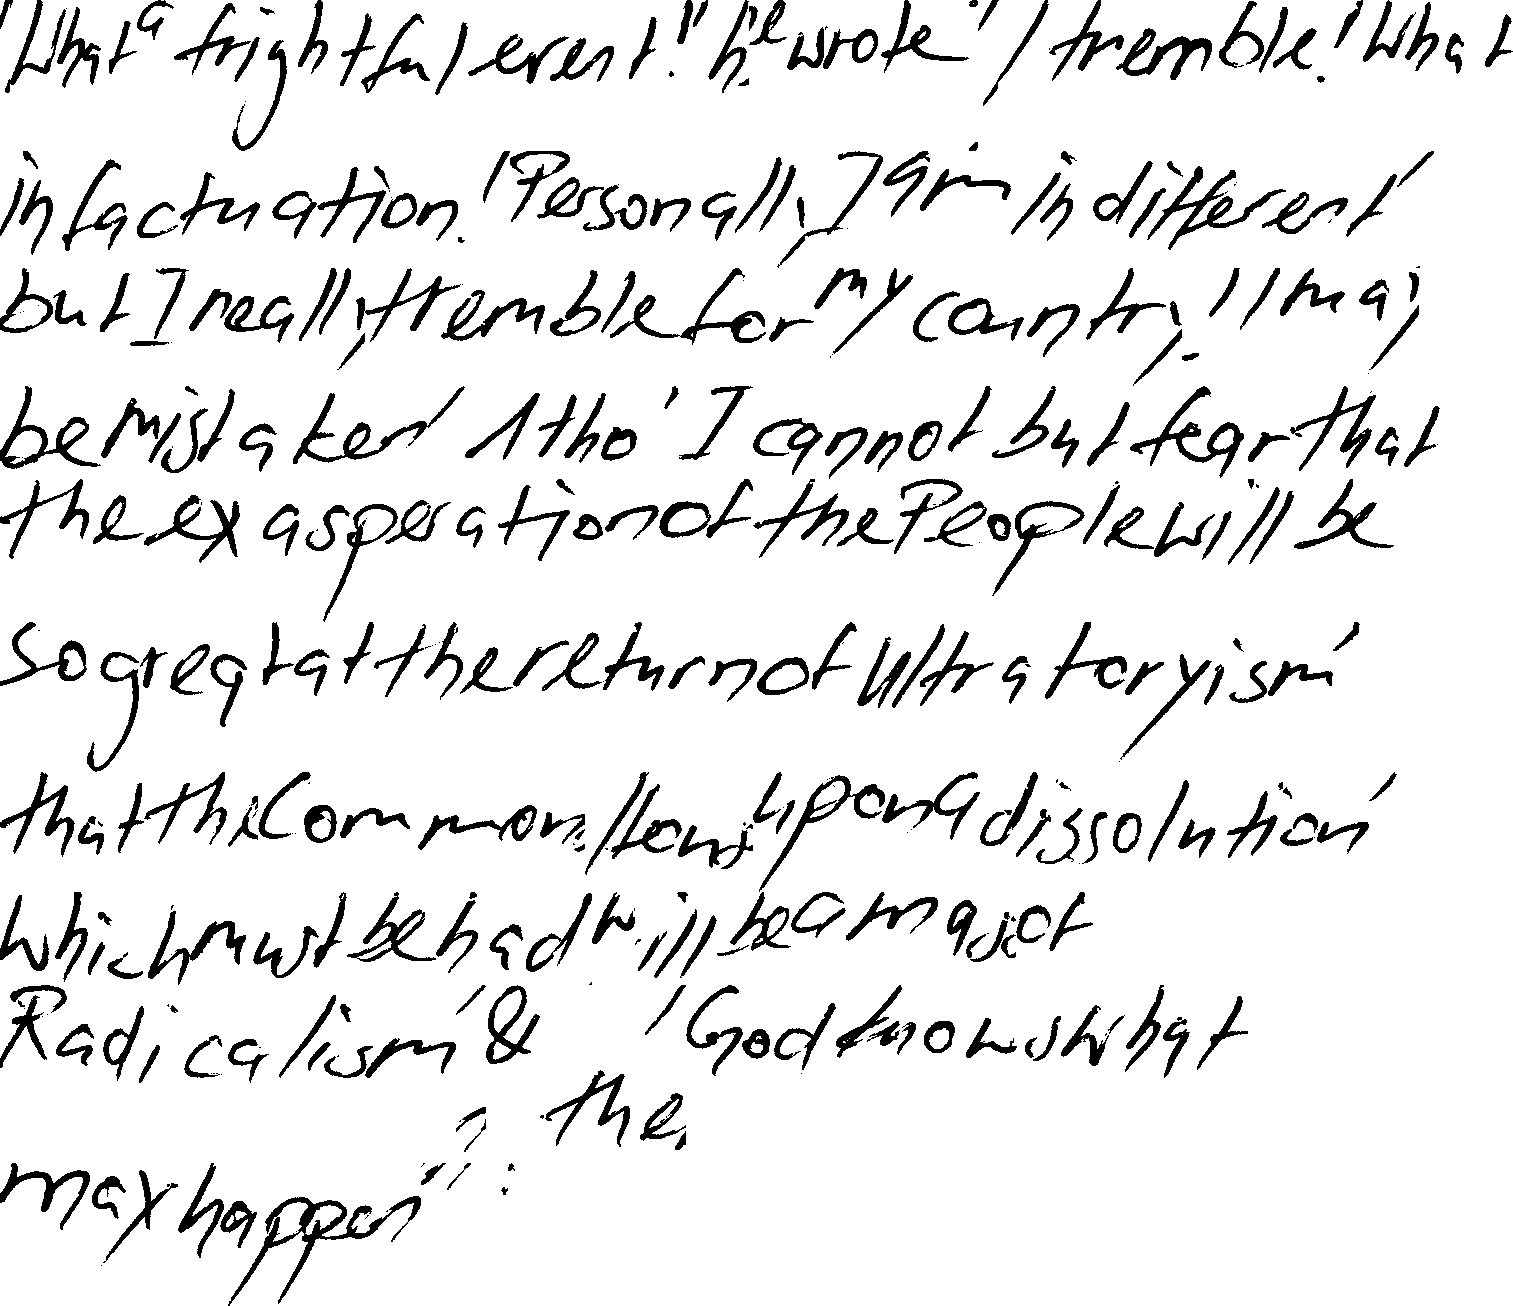 "What a frightful event!" he wrote "I tremble! What
infactuation! Personally, I am indifferent
but I really tremble for my country. I may
be mistaken Altho' I cannot but fear that
the exasperation of the People will be
so great at the return of Ultra toryism
that the Commons upon a dissolution
which must be had will be a maj of
Radicalism & God knows what
the
may happen":